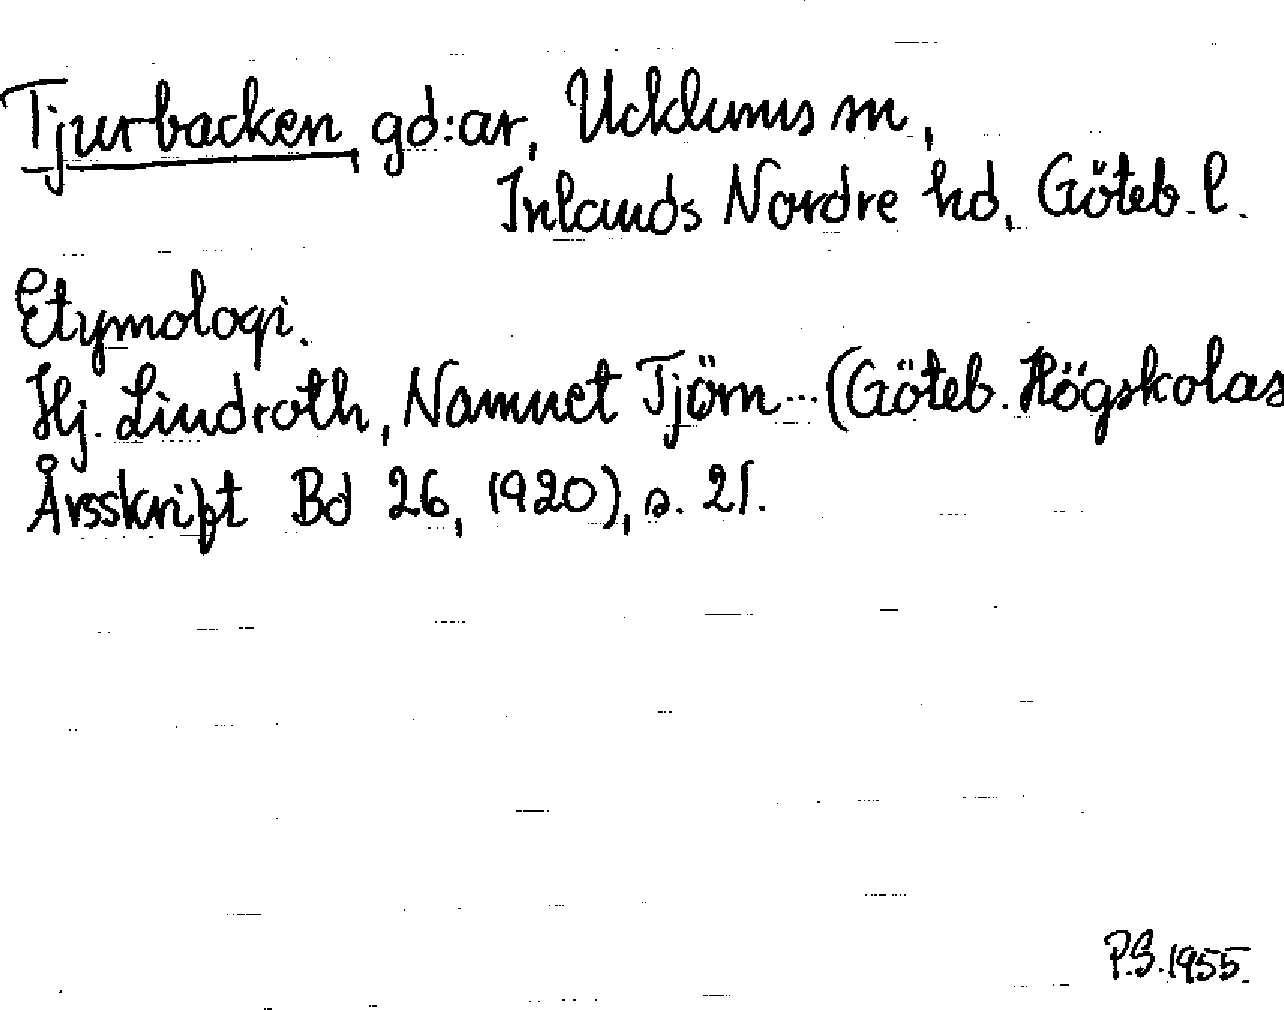 Tjurbacken gd:ar, Ucklums sn,
Inlands Nordre hd, Göteb. l.
Etymologi.
Hj. Lindroth, Namnet Tjörn... (Göteb. Högskolas
Årsskrift Bd 26, 1920), s. 21.
P.S. 1955.